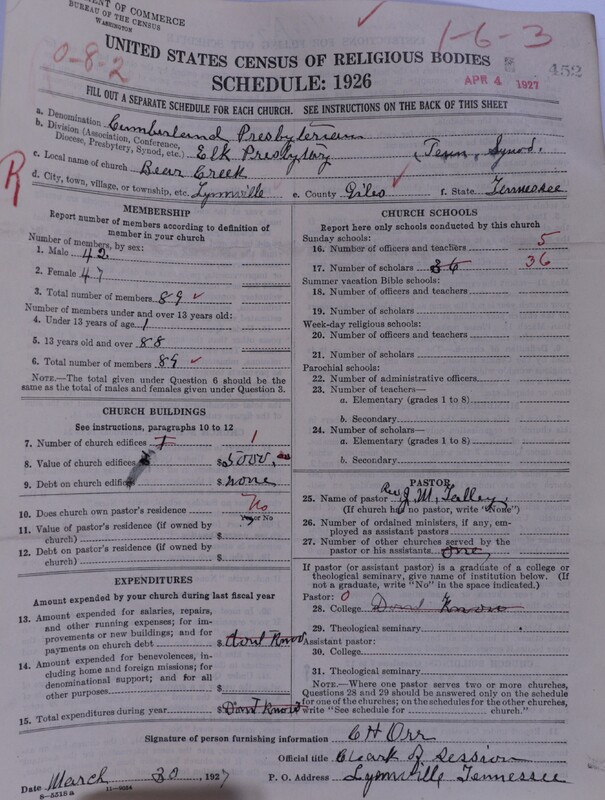 DEPARTMENT OF COMMERCE
BUREAU OF THE CENSUS
WASHINGTON
0-8-2
1-6-3
UNITED STATES CENSUS OF RELIGIOUS BODIES
SCHEDULE: 1926
APR 4 1927
452
FILL OUT A SEPARATE SCHEDULE FOR EACH CHURCH. SEE INSTRUCTIONS ON THE BACK OF THIS SHEET
a. Denomination Cumberland Presbyterian
b. Division (Association, Conference, Diocese, Presbytery, Synod, etc.) Elk Presbytery (Tenn. Synod.
c. Local name of church Bear Creek
R
d. City, town, village, or township, etc. Lynnville e. County Giles f. State Tennessee
MEMBERSHIP
Report number of members according to definition of member in your church
Number of members, by sex:
1. Male 42
2. Female 47
3. Total number of members 89
Number of members under and over 13 years old:
4. Under 13 years of age 1
5. 13 years old and over 88
6. Total number of members 89
NOTE.—The total given under Question 6 should be the same as the total of males and females given under Question 3.
CHURCH BUILDINGS
See instructions, paragraphs 10 to 12
7. Number of church edifices 1 1
8. Value of church edifices $5000.00
9. Debt on church edifices $none
10. Does church own pastor's residence No
Yes or No
11. Value of pastor's residence (if owned by church) $
12. Debt on pastor's residence (if owned by church) $
EXPENDITURES
Amount expended by your church during last fiscal year
13. Amount expended for salaries, repairs, and other running expenses; for improvements or new buildings; and for payments on church debt $ dont Know
14. Amount expended for benevolences, including home and foreign missions; for denominational support; and for all other purposes $
15. Total expenditures during year $Dont Know
CHURCH SCHOOLS
Report here only schools conducted by this church
Sunday schools:
16. Number of officers and teachers 5
17. Number of scholars 36 36
Summer vacation Bible schools:
18. Number of officers and teachers
19. Number of scholars
Week-day religious schools:
20. Number of officers and teachers
21. Number of scholars
Parochial schools:
22. Number of administrative officers
23. Number of teachers—
a. Elementary (grades 1 to 8)
b. Secondary
24. Number of scholars—
a. Elementary (grades 1 to 8)
b. Secondary
PASTOR
25. Name of pastor Rev J. M. Talley
(If church has no pastor, write "None")
26. Number of ordained ministers, if any, employed as assistant pastors
27. Number of other churches served by the pastor or his assistants one
If pastor (or assistant pastor) is a graduate of a college or theological seminary, give name of institution below. (If not a graduate, write "No" in the space indicated.)
Pastor: 0
28. College Dont Know
29. Theological seminary
Assistant pastor:
30. College
31. Theological seminary
NOTE.—Where one pastor serves two or more churches, Questions 28 and 29 should be answered only on the schedule for one of the churches; on the schedules for the other churches, write "See schedule for church."
Signature of person furnishing information C H Orr
Official title Cleark of Session
Date March 30 1927 P. O. Address Lynnville Tennessee
8-5518a 11-9054